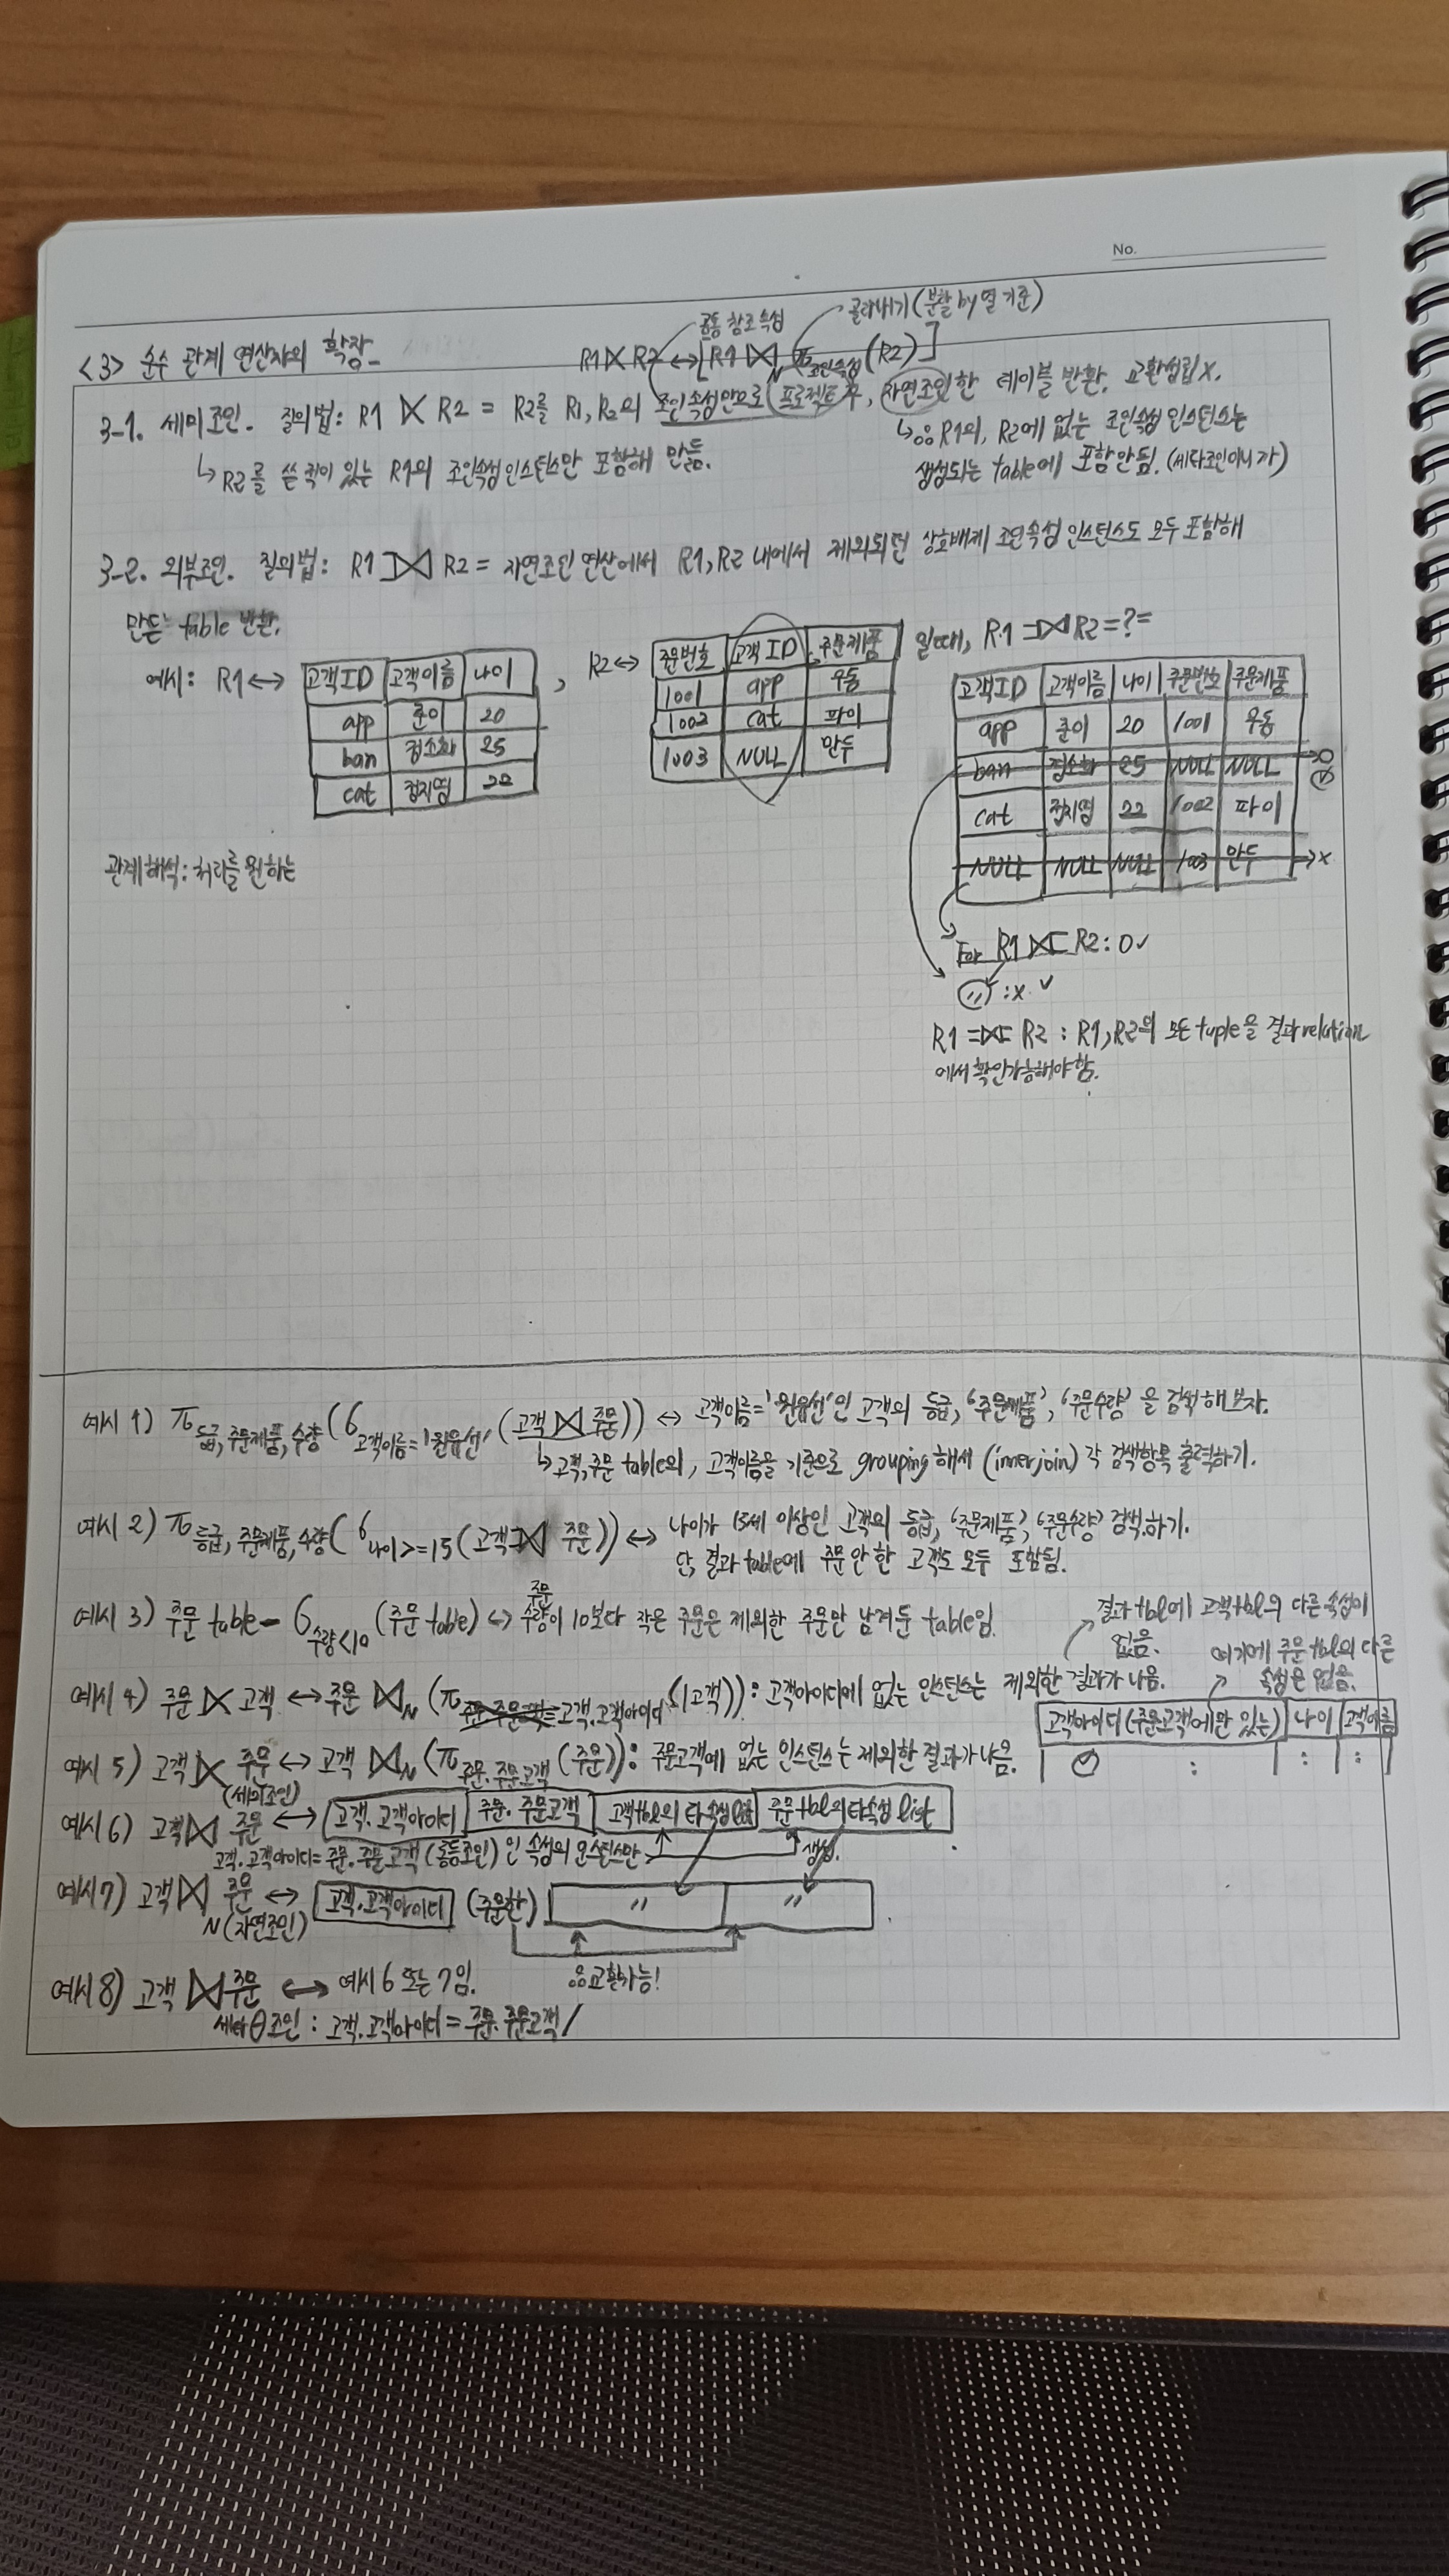 No.
공통 참조 속성
골라내기 (분할 by 열 기준)
<3> 순수 관계 연산자의 확장
R1 ⋉ R2 ↔ [R1 ⋈N π조인속성(R2)]
3-1. 세미조인. 질의법: R1 ⋉ R2 = R2를 R1, R2의 조인속성만으로 프로젝트 후, 자연조인한 테이블 반환. 교환성립 x.
↳ R2를 쓴 적이 있는 R1의 조인속성 인스턴스만 포함해 만듦.
↳ ∴ R1의, R2에 없는 조인속성 인스턴스는
생성되는 table에 포함 안 됨. (세타조인이니까)
3-2. 외부조인. 질의법: R1 ⟕ R2 = 자연조인 연산에서 R1, R2 내에서 제외되던 상호배제 조인속성 인스턴스도 모두 포함해
만든 table 반환.
예시: R1 ↔
고객ID 고객이름 나이
app 준이 20
ban 정소화 25
cat 정지영 22
, R2 ↔
주문번호 고객ID 주문제품
1001 app 우동
1002 cat 파이
1003 NULL 만두
일 때, R1 ⟕ R2 = ? =
고객ID 고객이름 나이 주문번호 주문제품
app 준이 20 1001 우동
ban 정소화 25 NULL NULL → O
cat 정지영 22 1002 파이
NULL NULL NULL 1003 만두 → x
관계해석: 처리를 원하는
For R1 ⟖ R2 : O ✓
〃 : x ✓
R1 ⟗ R2 : R1, R2의 모든 tuple을 결과 relation
에서 확인가능해야 함.
예시 1) π등급, 주문제품, 수량 (σ고객이름='원유선' (고객 ⋈ 주문)) ↔ 고객이름='원유선'인 고객의 등급, '주문제품', '주문수량'을 검색해보자.
↳ 고객, 주문 table의, 고객이름을 기준으로 grouping 해서 (inner join) 각 검색항목 출력하기.
예시 2) π등급, 주문제품, 수량 (σ나이>=15 (고객 ⟕ 주문)) ↔ 나이가 15세 이상인 고객의 등급, '주문제품', '주문수량' 검색하기.
단, 결과 table에 주문 안 한 고객도 모두 포함됨.
예시 3) 주문 table - σ수량<10 (주문 table) ↔ 주문 수량이 10보다 작은 주문은 제외한 주문만 남겨둔 table임.
결과 tbl에 고객 tbl의 다른 속성이
없음.
여기에 주문 tbl의 다른
속성은 없음.
예시 4) 주문 ⋉ 고객 ↔ 주문 ⋈N (π고객.고객아이디 (고객)) : 고객아이디에 없는 인스턴스는 제외한 결과가 나옴.
고객아이디 (주문고객에만 있는) 나이 고객이름
: : :
예시 5) 고객 ⋉ 주문 ↔ 고객 ⋈N (π주문.주문고객 (주문)) : 주문고객에 없는 인스턴스는 제외한 결과가 나옴.
(세미조인)
예시 6) 고객 ⋈ 주문 ↔ 고객.고객아이디 주문.주문고객 고객tbl의 타속성 list 주문tbl의 타속성 list
고객.고객아이디=주문.주문고객 (동등조인) 인 속성의 인스턴스만 생성.
예시 7) 고객 ⋈ 주문 ↔ 고객.고객아이디 (주문한) 〃 〃
N (자연조인)
∴ 교환가능!
예시 8) 고객 ⋈ 주문 ↔ 예시 6 또는 7임.
세타 θ조인 : 고객.고객아이디 = 주문.주문고객 /